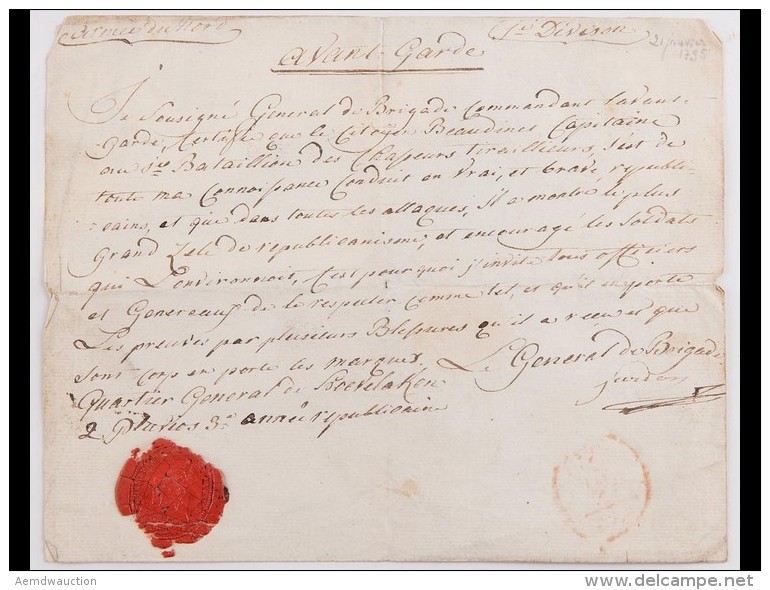 Armée du Nord
1re Division
21 janvier
1795
avant Garde
Je Sousigné General de Brigade Commandant lavant-
garde, Certifie que le Citoyen Beaudinet Capitaine
au Bataillion des Chasseurs tirailleurs, s'est de
toute ma Connoissance Conduit en vrai, et brave republi-
cains, et que dans toutes les attaques, Il a montré le plus
Grand Zele de republicanisme, et encouragé les Soldats
qui L'environnoit, C'est pourquoi j'invite tous officiers
et Genereaux de le respecter Comme tel, et qu'il en porte
Les preuves par plusieurs Blessures qu'il a reçu et que
Sont Corp en porte les marques. Le General de Brigade
Quartier General de Hoevelaken
2 Pluvios 3e année republicaine
Aemdwauction
www.delcampe.net